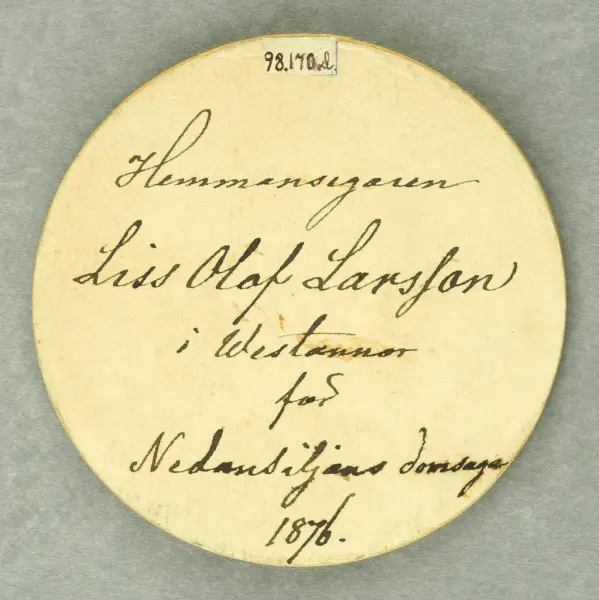 98.170.d.
Hemmansegaren
Liss Olof Larsson
i Westannor
för
Nedansiljans domsaga
1876.